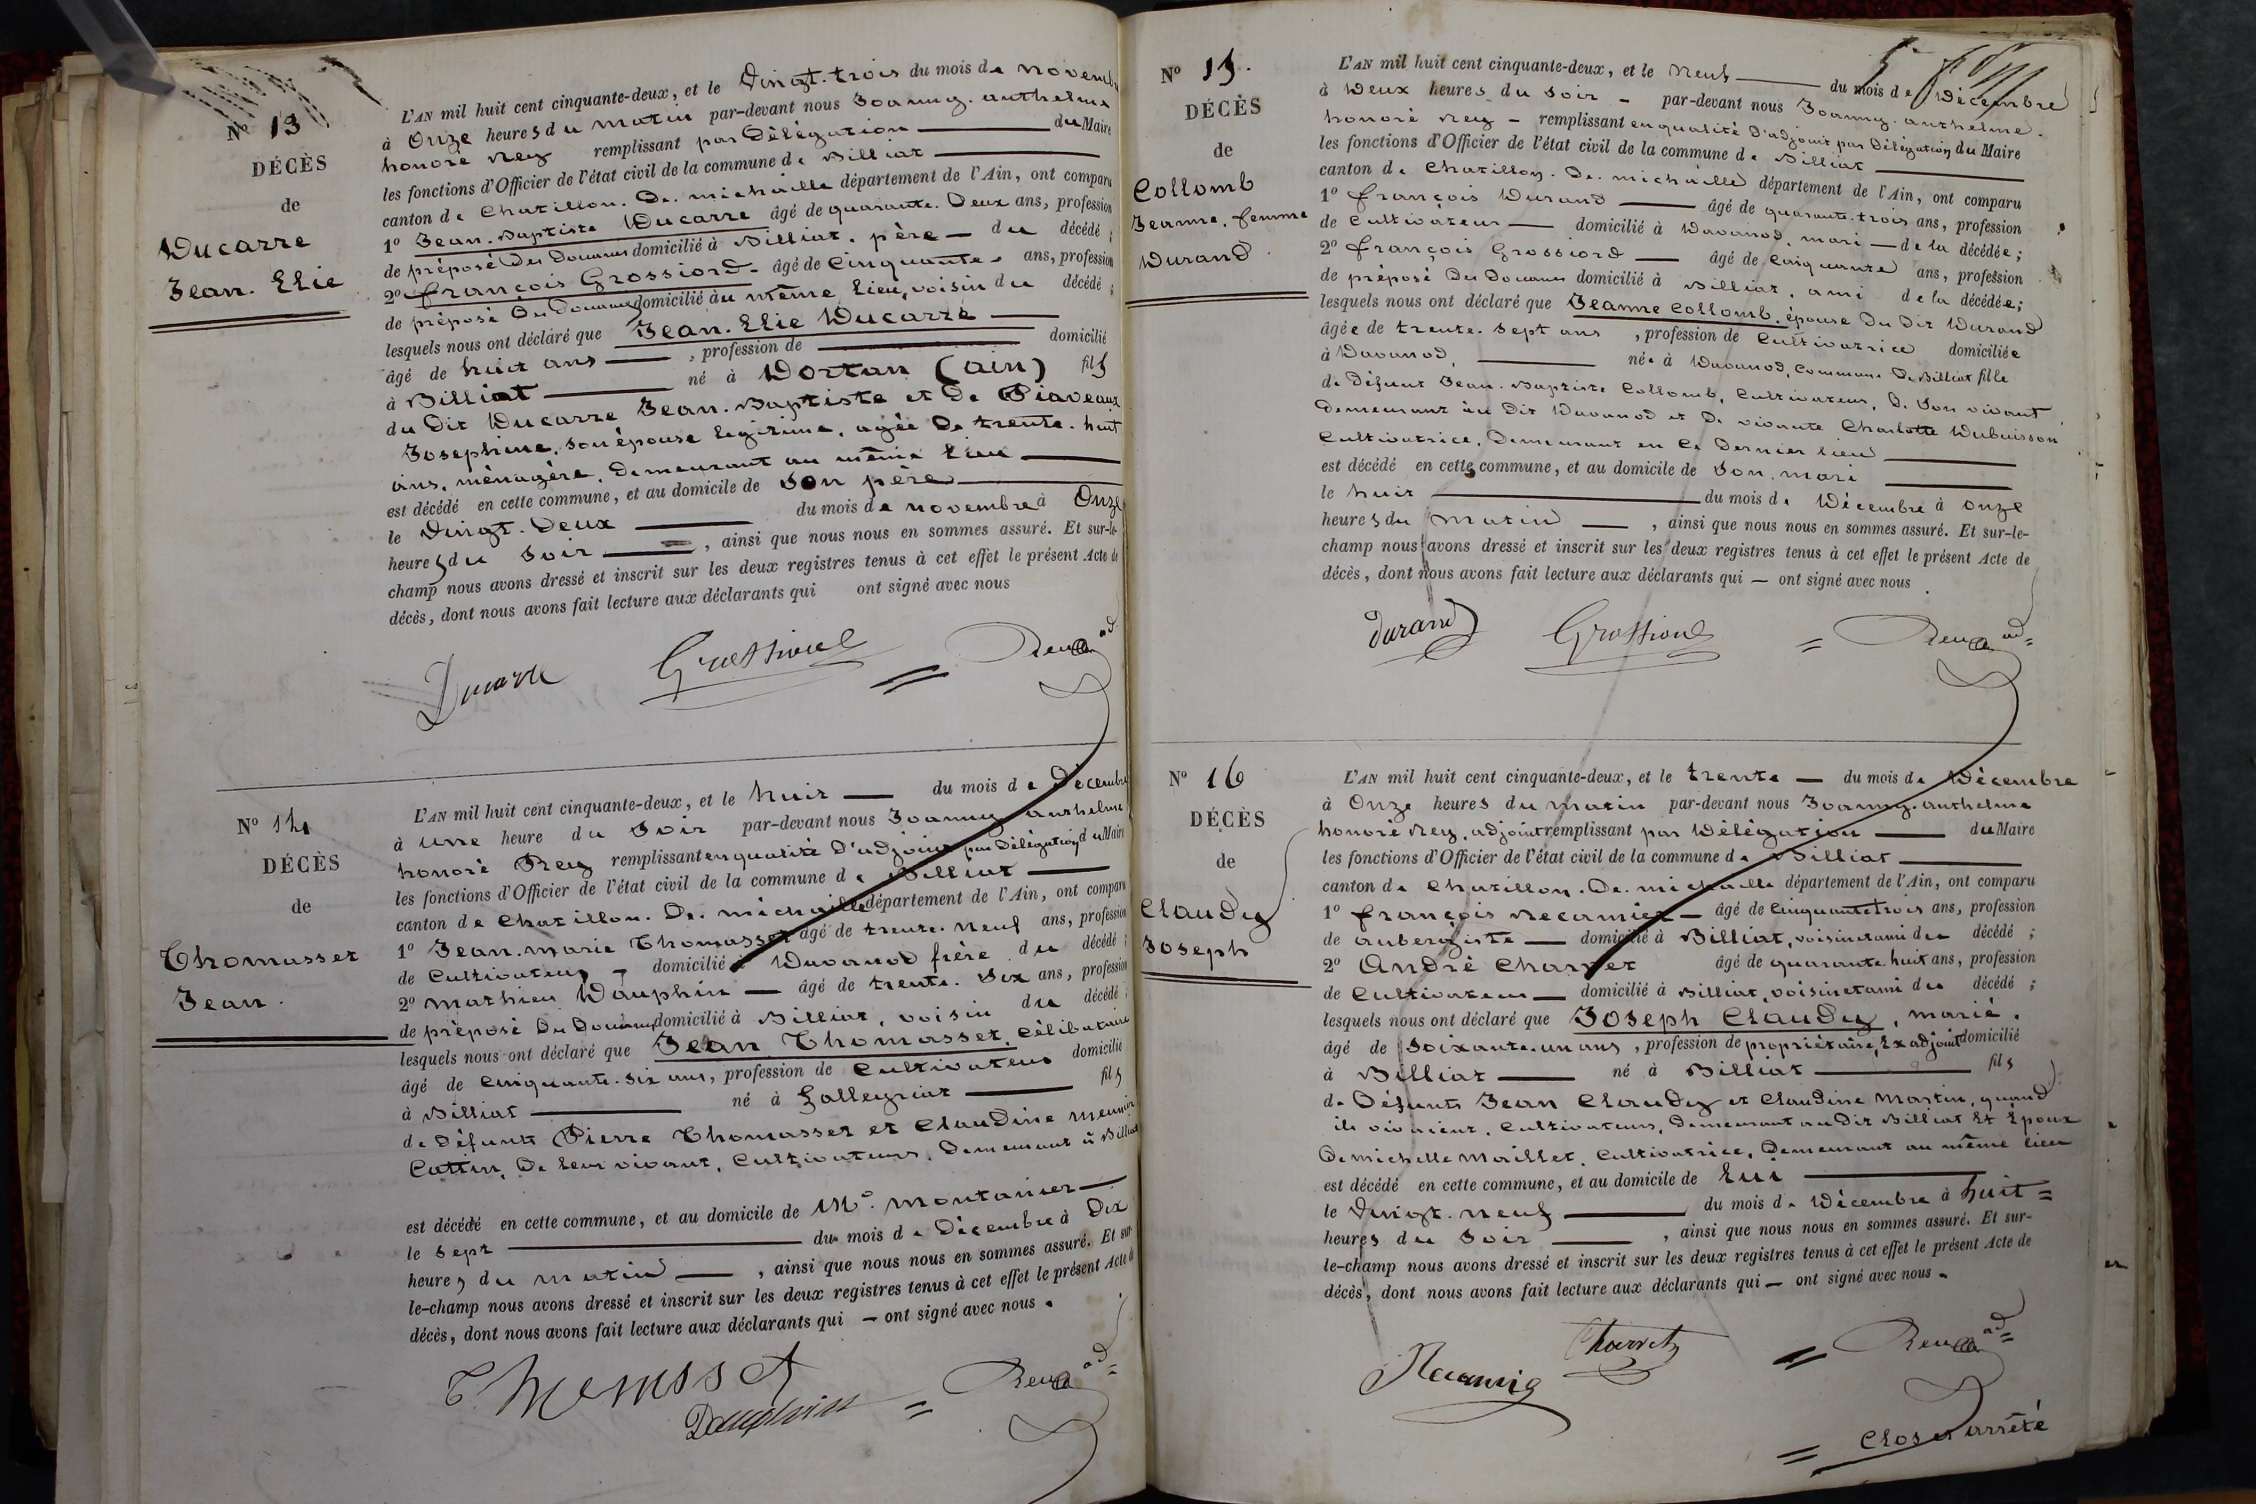 N° 13
DÉCÈS
de
Ducarre
Jean. Elie
L'AN mil huit cent cinquante-deux, et le Vingt. trois du mois de novembre
à Onze heures du matin par-devant nous Joanny. anthelme
honoré Rey remplissant par Délégation du Maire
les fonctions d'Officier de l'état civil de la commune de Billiat
canton de Chatillon. De. michaille département de l'Ain, ont comparu
1° Jean. Baptiste Ducarre âgé de quarante. Deux ans, profession
de préposé Des Douanes domicilié à Billiat. père du décédé ;
2° françois Grossiord âgé de Cinquante ans, profession
de préposé Des Douanes domicilié au même lieu, voisin du décédé ;
lesquels nous ont déclaré que Jean. Elie Ducarre
âgé de huit ans , profession de domicilié
à Billiat né à Dortan (ain) fils
du Dit Ducarre Jean. Baptiste et De Piaveaux
Josephine, son épouse légitime, agée De trente. huit
ans, ménagère, Demeurant au même lieu
est décédé en cette commune, et au domicile de Son père
le Vingt. Deux du mois de novembre à Onze
heures du Soir , ainsi que nous nous en sommes assuré. Et sur-le-
champ nous avons dressé et inscrit sur les deux registres tenus à cet effet le présent Acte de
décès, dont nous avons fait lecture aux déclarants qui ont signé avec nous
Ducarre Grossiord Rey ad
N° 14
DÉCÈS
de
Thomasset
Jean.
L'AN mil huit cent cinquante-deux, et le huit du mois de Décembre
à une heure du Soir par-devant nous Joanny anthelme
honoré Rey remplissant en qualité D'adjoint par Délégation du Maire
les fonctions d'Officier de l'état civil de la commune de Billiat
canton de Chatillon. De. michaille département de l'Ain, ont comparu
1° Jean. marie Thomasset âgé de trente. neuf ans, profession
de Cultivateur domicilié à Davanod frère du décédé ;
2° mathieu Dauphin âgé de trente. Six ans, profession
de préposé Des Douanes domicilié à Billiat, voisin du décédé ;
lesquels nous ont déclaré que Jean Thomasset, Célibataire
âgé de Cinquante. Six ans, profession de Cultivateur domicilié
à Billiat né à Lalleyriat fils
de Défunts Pierre Thomasset et Claudine Meunier
Cattin, De leur vivant, Cultivateurs, Demeurant à Billiat
est décédé en cette commune, et au domicile de Mr. Montanier
le Sept du mois de Décembre à Dix
heures du matin , ainsi que nous nous en sommes assuré. Et sur-
le-champ nous avons dressé et inscrit sur les deux registres tenus à cet effet le présent Acte de
décès, dont nous avons fait lecture aux déclarants qui — ont signé avec nous.
Thomasset
Dauphin Rey ad
N° 15.
DÉCÈS
de
Collomb
Jeanne, femme
Durand.
L'AN mil huit cent cinquante-deux, et le neuf du mois de Décembre
à Deux heures du Soir par-devant nous Joanny. anthelme.
honoré Rey remplissant en qualité D'adjoint par Délégation du Maire
les fonctions d'Officier de l'état civil de la commune de Billiat
canton de Chatillon. De. michaille département de l'Ain, ont comparu
1° françois Durand âgé de quarante. trois ans, profession
de Cultivateur domicilié à Davanod, mari de la décédée ;
2° françois Grossiord âgé de Cinquante ans, profession
de préposé Des Douanes domicilié à Billiat, ami de la décédée ;
lesquels nous ont déclaré que Jeanne Collomb, épouse Du Dit Durand
âgée de trente. Sept ans , profession de Cultivatrice domiciliée
à Davanod, née à Davanod, Commune De Billiat fille
de Défunt Jean. Baptiste Collomb, Cultivateur, De Son vivant
Demeurant au Dit Davanod et De vivante Charlotte Dubuisson
Cultivatrice, Demeurant en Ce Dernier lieu
est décédé en cette commune, et au domicile de Son mari
le huit du mois de Décembre à onze
heures du matin , ainsi que nous nous en sommes assuré. Et sur-le-
champ nous avons dressé et inscrit sur les deux registres tenus à cet effet le présent Acte de
décès, dont nous avons fait lecture aux déclarants qui — ont signé avec nous.
Durand Grossiord Rey ad
N° 16
DÉCÈS
de
Claudy
Joseph
L'AN mil huit cent cinquante-deux, et le trente du mois de Décembre
à Onze heures du matin par-devant nous Joanny. anthelme
honoré Rey, adjoint remplissant par Délégation du Maire
les fonctions d'Officier de l'état civil de la commune de Billiat
canton de Chatillon. De. michaille département de l'Ain, ont comparu
1° françois Recamier âgé de Cinquante trois ans, profession
de aubergiste domicilié à Billiat, voisin et ami du décédé ;
2° André Charvet âgé de quarante. huit ans, profession
de Cultivateur domicilié à Billiat, voisin et ami du décédé ;
lesquels nous ont déclaré que Joseph Claudy, marié,
âgé de Soixante. un ans , profession de propriétaire, Ex adjoint domicilié
à Billiat né à Billiat fils
de Défunts Jean Claudy et Claudine Martin, quand
ils vivaient, Cultivateurs, Demeurant au Dit Billiat Et Epoux
De Michelle Maillet, Cultivatrice, Demeurant au même lieu
est décédé en cette commune, et au domicile de Lui
le Vingt. neuf du mois de Décembre à huit =
heures du Soir , ainsi que nous nous en sommes assuré. Et sur-
le-champ nous avons dressé et inscrit sur les deux registres tenus à cet effet le présent Acte de
décès, dont nous avons fait lecture aux déclarants qui — ont signé avec nous.
Charvet Rey ad
Clos et arrêté